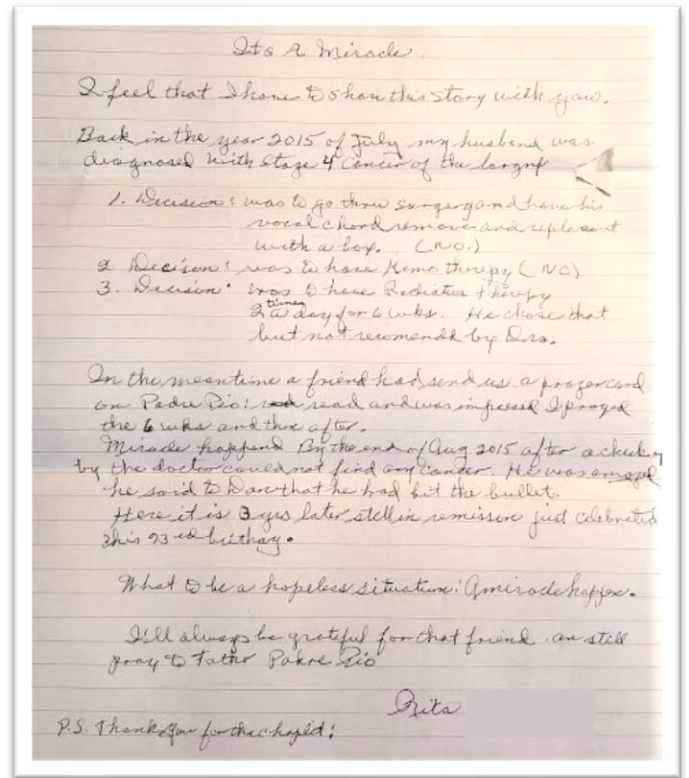 Its A Miracle.
I feel that I have to share this story with you.
Back in the year 2015 of July my husband was
diagnosed with Stage 4 Cancer of the
1. Decision: was to go thru surgery and have his
vocal chord remove and replacent
with a box. (NO.)
2 Decison: was to have Kemo therepy (NO)
3. Decision: was to have Radiation therepy
2 times a day for 6 wks. He chose that
but not recomende by Drs.
In the meantime a friend had send us a prayer card
on Padre Pio! read and was impressed I prayed
the 6 wks and there after.
Miracle happend By the end of Aug 2015 after a check up
by the doctor could not find any cancer. He was amazed
he said to Dan that he had bit the bullet.
Here it is 3 yrs later still in remisson just celebrated
his 73rd
What to be a hopeless situation! A miracle happen.
I'll always be grateful for that friend an still
pray to Father Padre Pio
Rita
P.S. Thank You for the